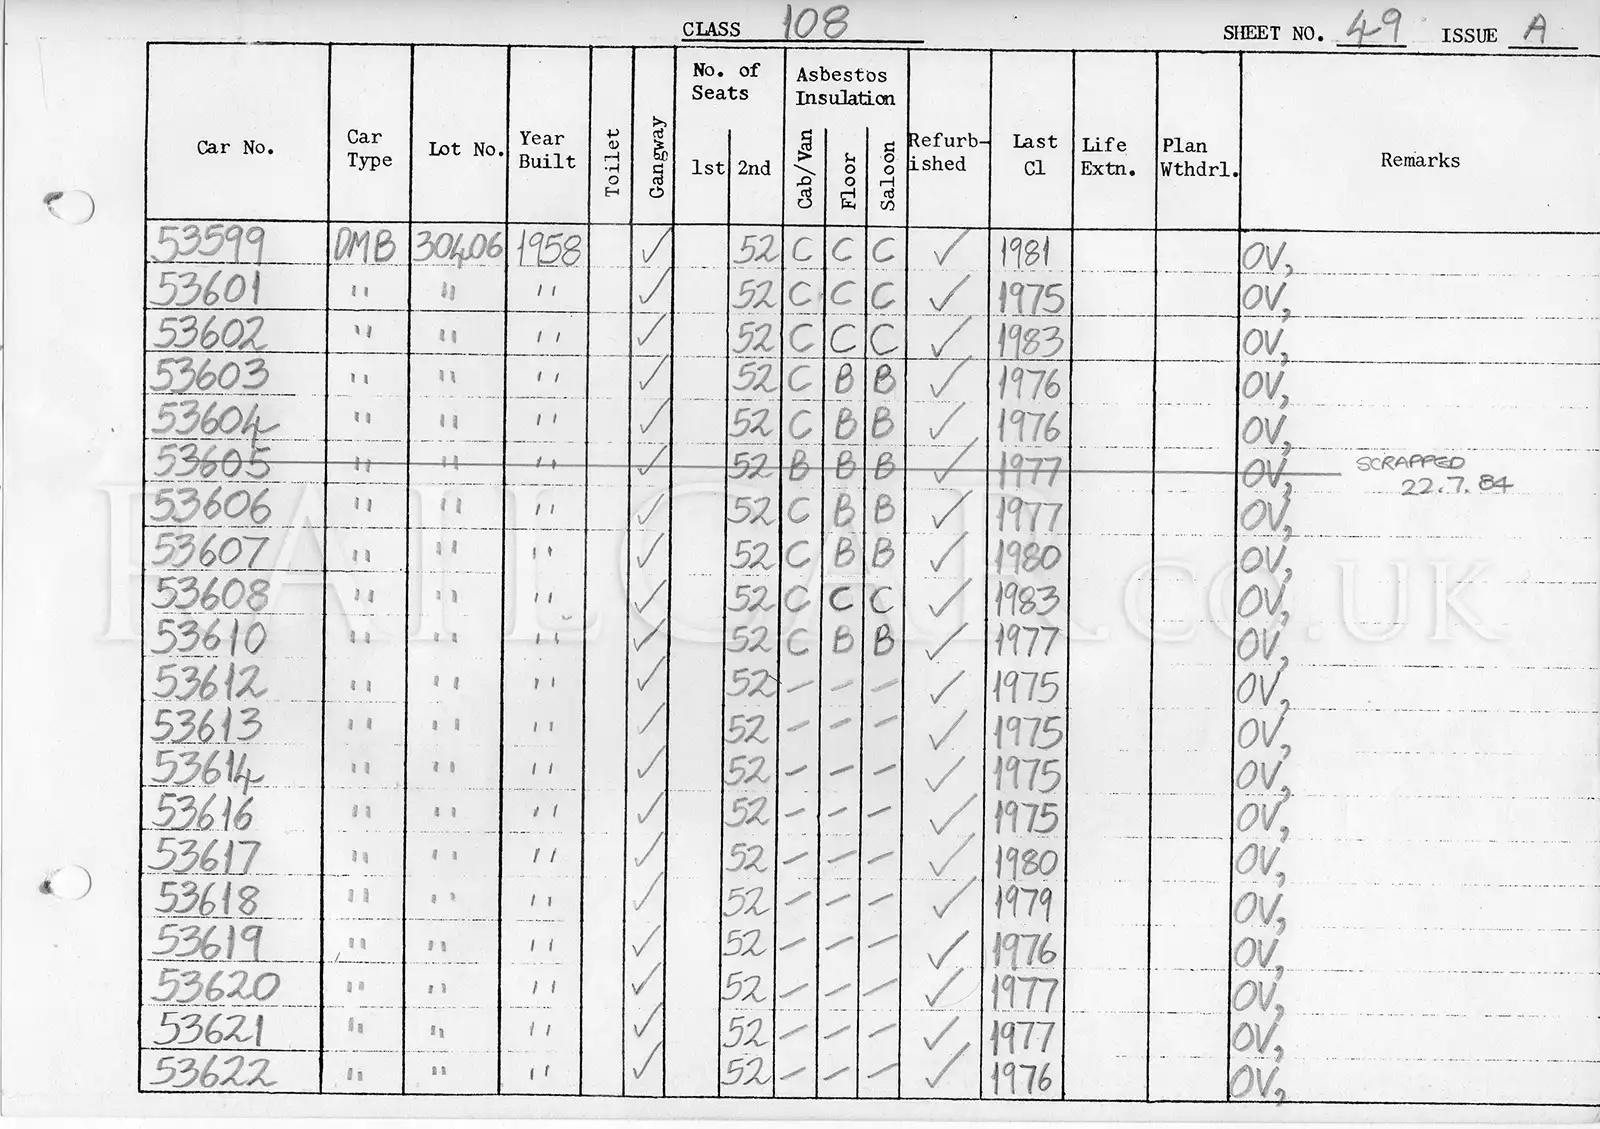 CLASS 108 SHEET NO. 49 ISSUE A
Car No. Car Type Lot No. Year Built Toilet Gangway No. of Seats 1st 2nd Asbestos Insulation Cab/Van Floor Saloon Refurb-ished Last Cl Life Extn. Plan Wthdrl. Remarks
53599 DMB 30406 1958 ✓ 52 C C C ✓ 1981 OV,
53601 " " " ✓ 52 C C C ✓ 1975 OV,
53602 " " " ✓ 52 C C C ✓ 1983 OV,
53603 " " " ✓ 52 C B B ✓ 1976 OV,
53604 " " " ✓ 52 C B B ✓ 1976 OV,
53605 " " " ✓ 52 B B B ✓ 1977 OV, SCRAPPED
22.7.84
53606 " " " ✓ 52 C B B ✓ 1977 OV,
53607 " " " ✓ 52 C B B ✓ 1980 OV,
53608 " " " ✓ 52 C C C ✓ 1983 OV,
RAILCAR.CO.UK
53610 " " " ✓ 52 C B B ✓ 1977 OV,
53612 " " " ✓ 52 – – – ✓ 1975 OV,
53613 " " " ✓ 52 – – – ✓ 1975 OV,
53614 " " " ✓ 52 – – – ✓ 1975 OV,
53616 " " " ✓ 52 – – – ✓ 1975 OV,
53617 " " " ✓ 52 – – – ✓ 1980 OV,
53618 " " " ✓ 52 – – – ✓ 1979 OV,
53619 " " " ✓ 52 – – – ✓ 1976 OV,
53620 " " " ✓ 52 – – – ✓ 1977 OV,
53621 " " " ✓ 52 – – – ✓ 1977 OV,
53622 " " " ✓ 52 – – – ✓ 1976 OV,